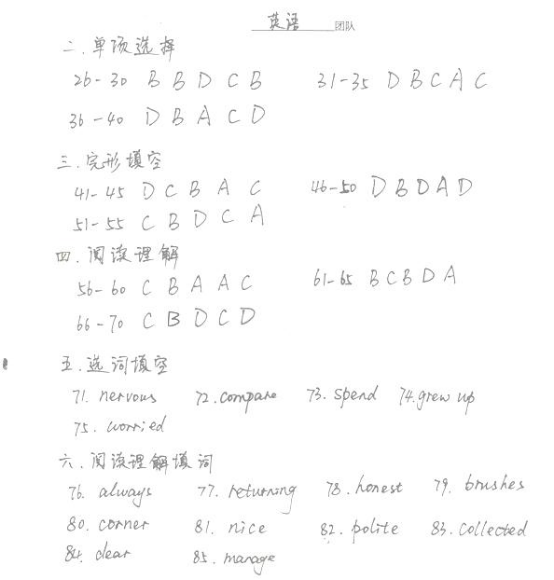 英语 团队
二.单项选择
26-30 B B D C B 31-35 D B C A C
36-40 D B A C D
三.完形填空
41-45 D C B A C 46-50 D B D A D
51-55 C B D C A
四.阅读理解
56-60 C B A A C 61-65 B C B D A
66-70 C B D C D
五.选词填空
71. nervous 72. compare 73. spend 74. grew up
75. worried
六.阅读理解填词
76. always 77. returning 78. honest 79. brushes
80. corner 81. nice 82. polite 83. collected
84. dear 85. manage